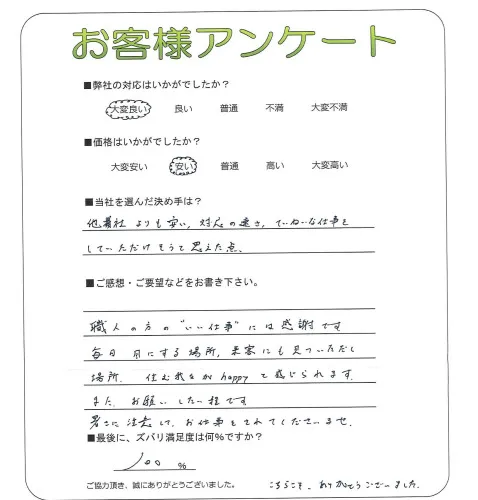 お客様アンケート
■弊社の対応はいかがでしたか？
大変良い 良い 普通 不満 大変不満
■価格はいかがでしたか？
大変安い 安い 普通 高い 大変高い
■当社を選んだ決め手は？
他社よりも安い, 対応の速さ, ていねいな仕事を
していただけそうと思えた点、
■ご感想・ご要望などをお書き下さい。
職人の方の"いい仕事"には感謝です
毎日 目にする場所, 来客にも見ていただく
場所. 住む我々がhappyと感じられます.
また, お願いしたい程です
暑さに注意して, お仕事をされてくださいませ.
■最後に、ズバリ満足度は何％ですか？
100 %
ご協力頂き、誠にありがとうございました。 こちらこそ、ありがとうございました.